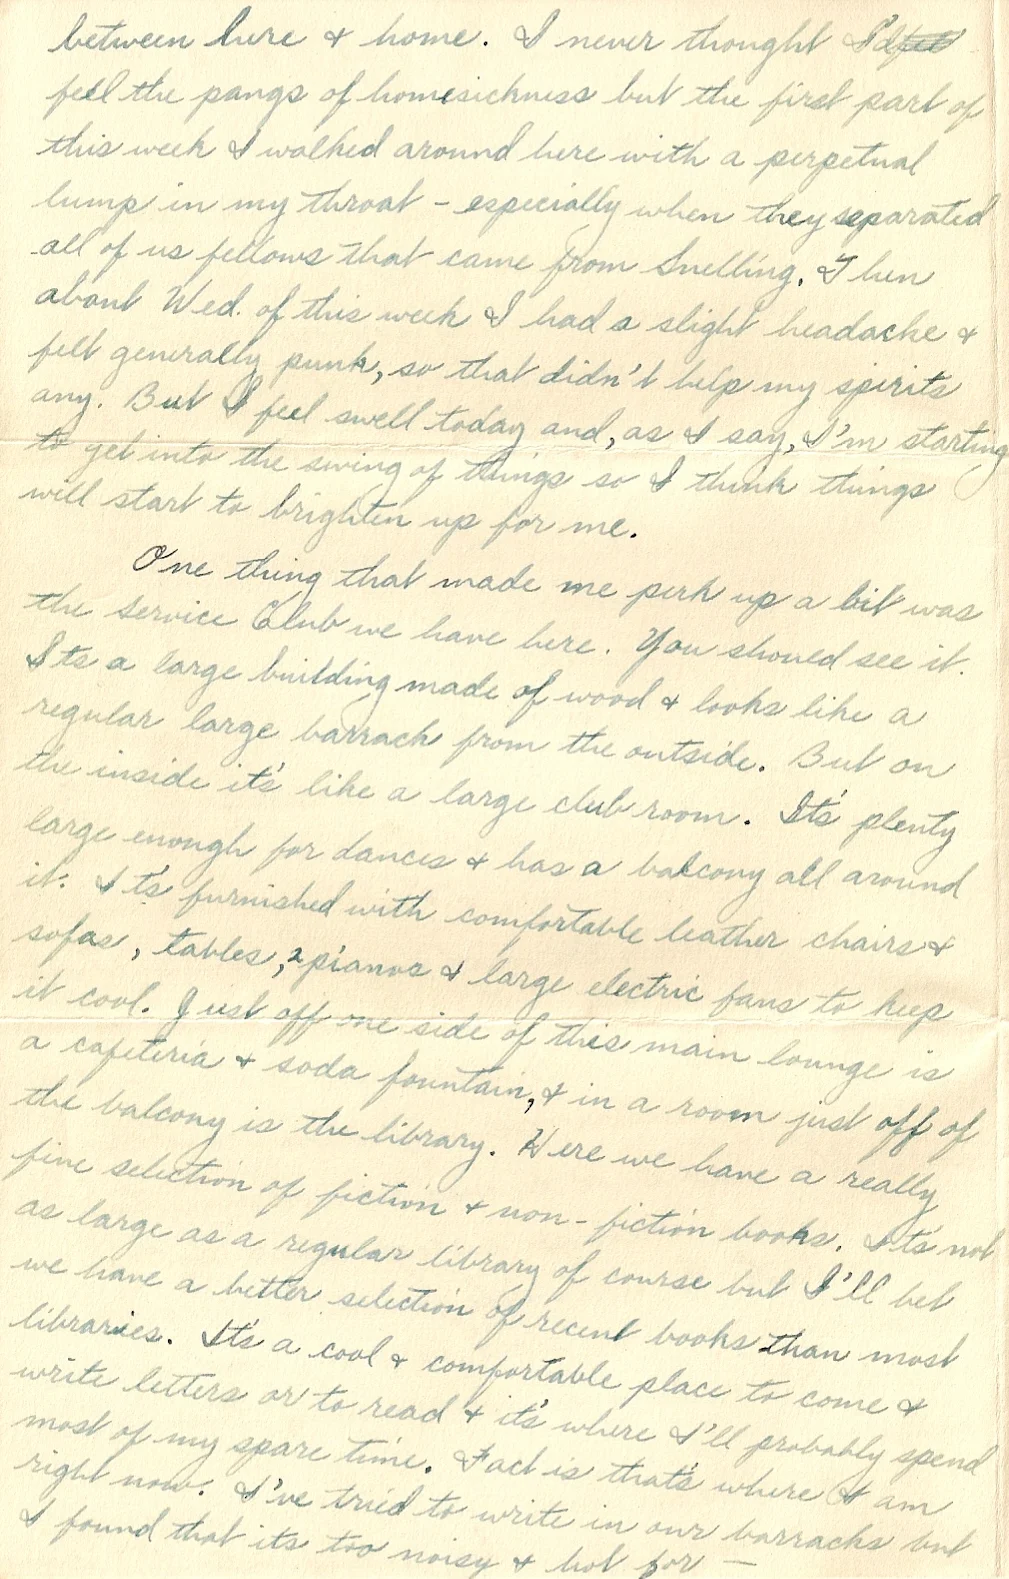 between here & home. I never thought I'd
feel the pangs of homesickness but the first part of
this week I walked around here with a perpetual
lump in my throat - especially when they separated
all of us fellows that came from Snelling. Then
about Wed. of this week I had a slight headache &
felt generally punk, so that didn't help my spirits
any. But I feel swell today and, as I say, I'm starting
to get into the swing of things so I think things
will start to brighten up for me.
One thing that made me perk up a bit was
the Service Club we have here. You should see it.
Its a large building made of wood & looks like a
regular large barrack from the outside. But on
the inside it's like a large club room. It's plenty
large enough for dances & has a balcony all around
it. It's furnished with comfortable leather chairs &
sofas, tables, 2 pianos & large electric fans to keep
it cool. Just off one side of this main lounge is
a cafeteria & soda fountain, & in a room just off of
the balcony is the library. Here we have a really
fine selection of fiction & non-fiction books. It's not
as large as a regular library of course but I'll bet
we have a better selection of recent books than most
libraries. It's a cool & comfortable place to come &
write letters or to read & it's where I'll probably spend
most of my spare time. Fact is that's where I am
right now. I've tried to write in our barracks but
I found that its too noisy & hot for —